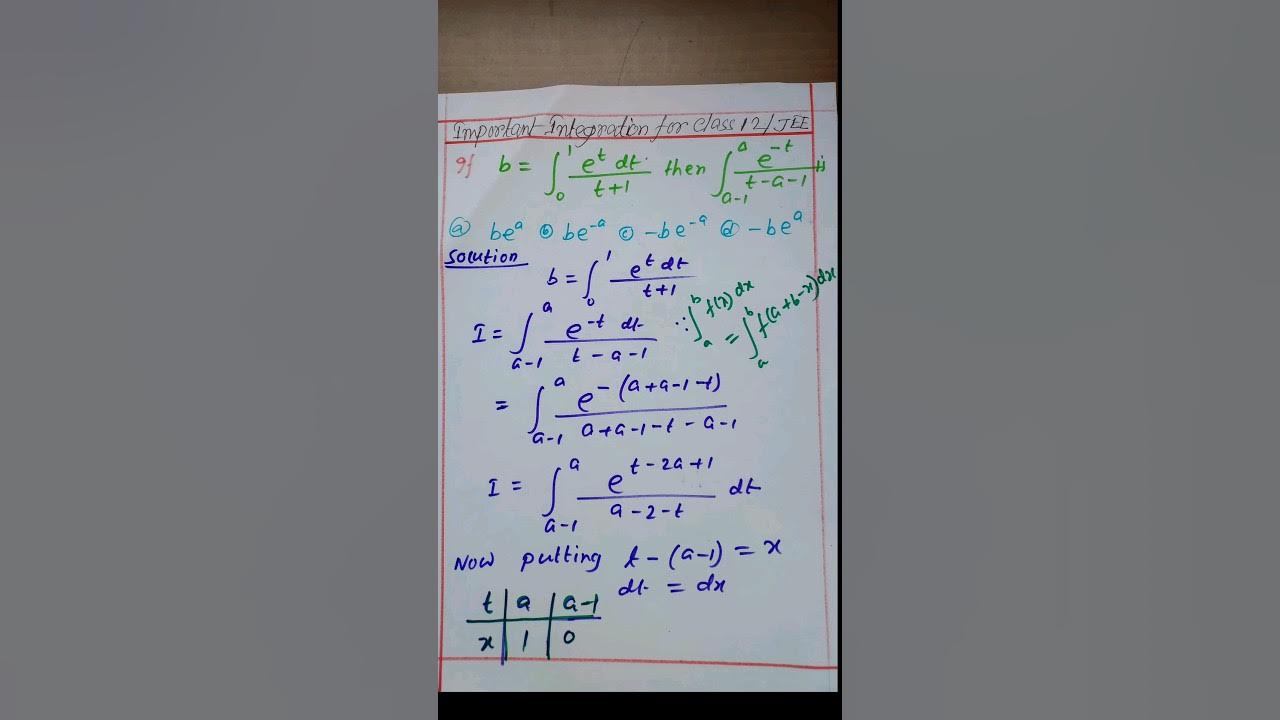 Important Integration for Class 12/JEE
If b = ∫₀¹ e^t dt / t+1 then ∫_{a-1}^{a} e^{-t} / t-a-1 is
ⓐ be^a ⓑ be^{-a} ⓒ -be^{-a} ⓓ -be^a
Solution
b = ∫₀¹ e^t dt / t+1
I = ∫_{a-1}^{a} e^{-t} dt / t-a-1 ∵ ∫_a^b f(x) dx
= ∫_a^b f(a+b-x) dx
= ∫_{a-1}^{a} e^{-(a+a-1-t)} / a+a-1-t-a-1
I = ∫_{a-1}^{a} e^{t-2a+1} / a-2-t dt
Now putting t-(a-1) = x
dt = dx
t | a | a-1
x | 1 | 0